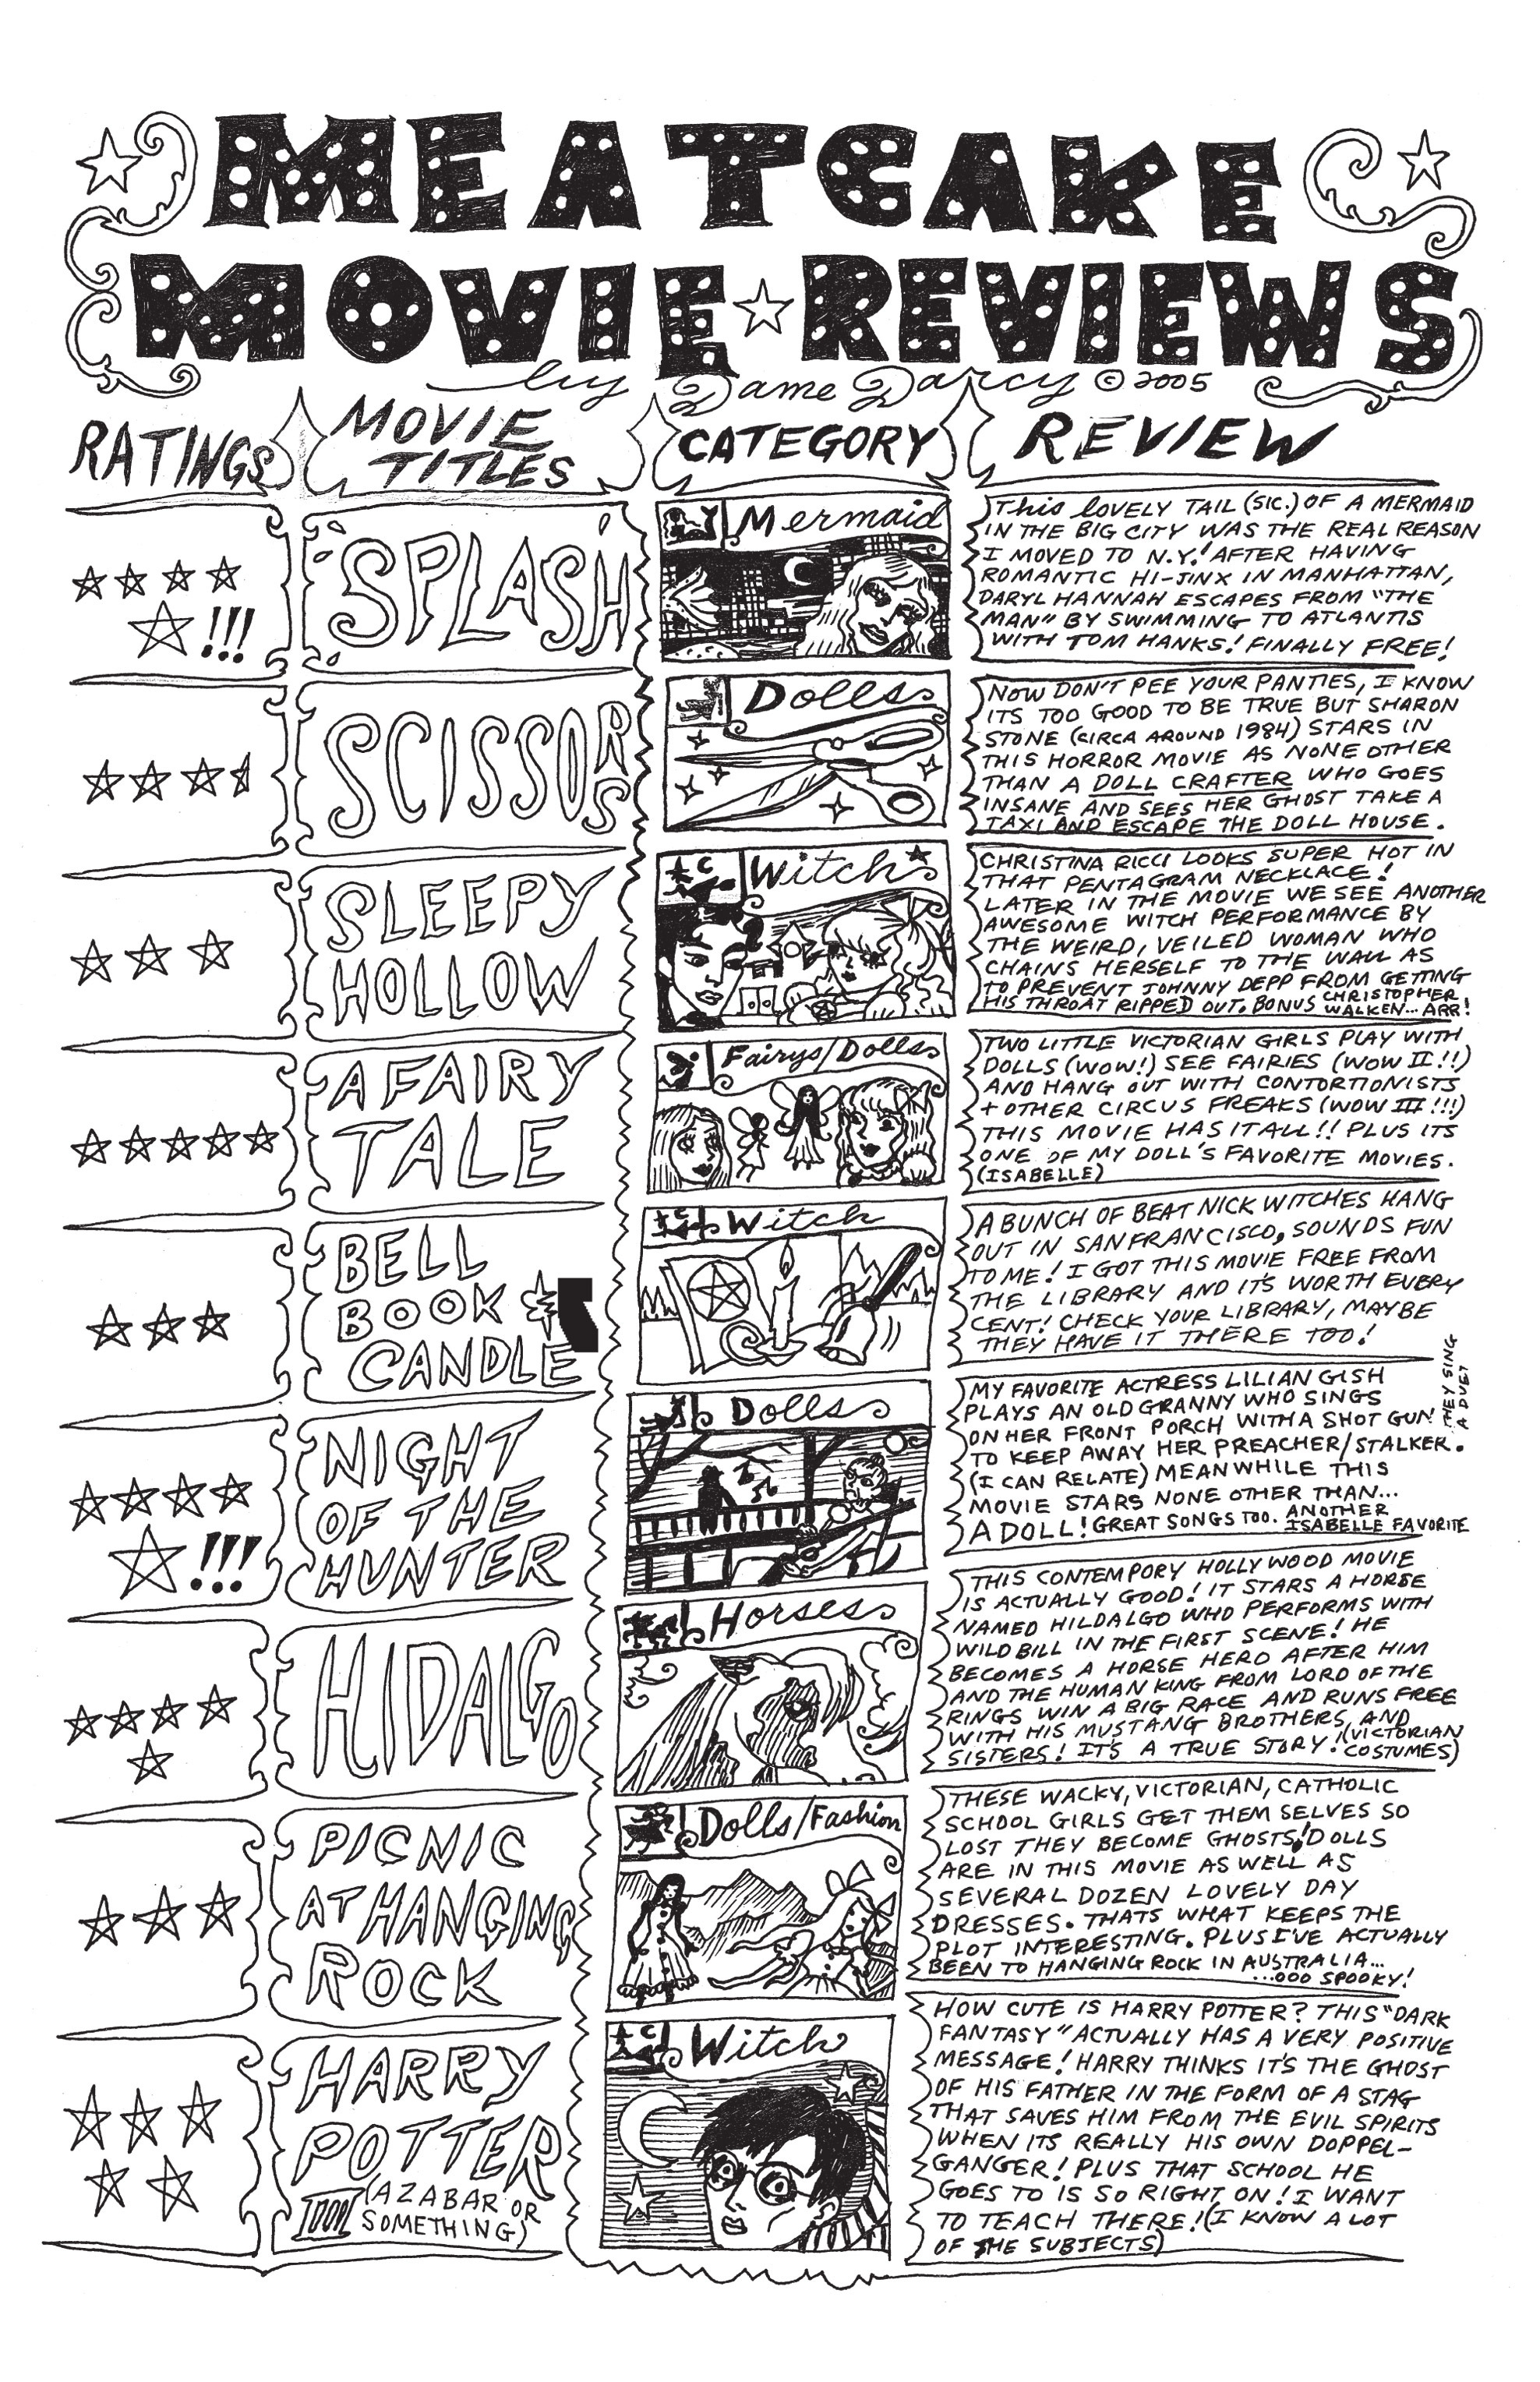 MEATCAKE
MOVIE REVIEWS
by Dame Darcy © 2005
RATINGS
MOVIE
TITLES
CATEGORY
REVIEW
!!!
SPLASH
Mermaid
This LOVELY TAIL (SIC.) OF A MERMAID
IN THE BIG CITY WAS THE REAL REASON
I MOVED TO N.Y.! AFTER HAVING
ROMANTIC HI-JINX IN MANHATTAN,
DARYL HANNAH ESCAPES FROM "THE
MAN" BY SWIMMING TO ATLANTIS
WITH TOM HANKS! FINALLY FREE!
SCISSORS
Dolls
NOW DON'T PEE YOUR PANTIES, I KNOW
ITS TOO GOOD TO BE TRUE BUT SHARON
STONE (CIRCA AROUND 1984) STARS IN
THIS HORROR MOVIE AS NONE OTHER
THAN A DOLL CRAFTER WHO GOES
INSANE AND SEES HER GHOST TAKE A
TAXI AND ESCAPE THE DOLL HOUSE.
SLEEPY
HOLLOW
Witch
CHRISTINA RICCI LOOKS SUPER HOT IN
THAT PENTAGRAM NECKLACE!
LATER IN THE MOVIE WE SEE ANOTHER
AWESOME WITCH PERFORMANCE BY
THE WEIRD, VEILED WOMAN WHO
CHAINS HERSELF TO THE WALL AS
TO PREVENT JOHNNY DEPP FROM GETTING
HIS THROAT RIPPED OUT. BONUS CHRISTOPHER
WALKEN... ARR!
A FAIRY
TALE
Fairys/Dolls
TWO LITTLE VICTORIAN GIRLS PLAY WITH
DOLLS (WOW!) SEE FAIRIES (WOW II!!)
AND HANG OUT WITH CONTORTIONISTS
+ OTHER CIRCUS FREAKS (WOW III!!!)
THIS MOVIE HAS IT ALL!! PLUS ITS
ONE OF MY DOLL'S FAVORITE MOVIES.
(ISABELLE)
BELL
BOOK
CANDLE
Witch
A BUNCH OF BEAT NICK WITCHES HANG
OUT IN SAN FRANCISCO, SOUNDS FUN
TO ME! I GOT THIS MOVIE FREE FROM
THE LIBRARY AND IT'S WORTH EVERY
CENT! CHECK YOUR LIBRARY, MAYBE
THEY HAVE IT THERE TOO!
NIGHT
OF THE
HUNTER
!!!
Dolls
MY FAVORITE ACTRESS LILIAN GISH
PLAYS AN OLD GRANNY WHO SINGS
ON HER FRONT PORCH WITH A SHOT GUN
TO KEEP AWAY HER PREACHER/STALKER.
THEY SING
A DUET
(I CAN RELATE) MEANWHILE THIS
MOVIE STARS NONE OTHER THAN...
A DOLL! GREAT SONGS TOO. ANOTHER
ISABELLE FAVORITE
HIDALGO
Horses
THIS CONTEMPORY HOLLYWOOD MOVIE
IS ACTUALLY GOOD! IT STARS A HORSE
NAMED HILDALGO WHO PERFORMS WITH
WILD BILL IN THE FIRST SCENE! HE
BECOMES A HORSE HERO AFTER HIM
AND THE HUMAN KING FROM LORD OF THE
RINGS WIN A BIG RACE AND RUNS FREE
WITH HIS MUSTANG BROTHERS AND
SISTERS! IT'S A TRUE STORY! (VICTORIAN
COSTUMES)
PICNIC
AT HANGING
ROCK
Dolls/Fashion
THESE WACKY, VICTORIAN, CATHOLIC
SCHOOL GIRLS GET THEM SELVES SO
LOST THEY BECOME GHOSTS! DOLLS
ARE IN THIS MOVIE AS WELL AS
SEVERAL DOZEN LOVELY DAY
DRESSES. THATS WHAT KEEPS THE
PLOT INTERESTING. PLUS I'VE ACTUALLY
BEEN TO HANGING ROCK IN AUSTRALIA...
...OOO SPOOKY!
HARRY
POTTER
III (AZABAR OR
SOMETHING)
Witch
HOW CUTE IS HARRY POTTER? THIS "DARK
FANTASY" ACTUALLY HAS A VERY POSITIVE
MESSAGE! HARRY THINKS IT'S THE GHOST
OF HIS FATHER IN THE FORM OF A STAG
THAT SAVES HIM FROM THE EVIL SPIRITS
WHEN ITS REALLY HIS OWN DOPPEL-
GANGER! PLUS THAT SCHOOL HE
GOES TO IS SO RIGHT ON! I WANT
TO TEACH THERE! (I KNOW A LOT
OF THE SUBJECTS)